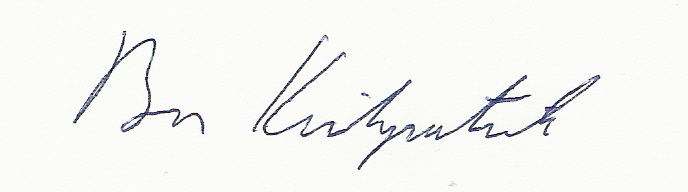 Ben Kirkpatrick